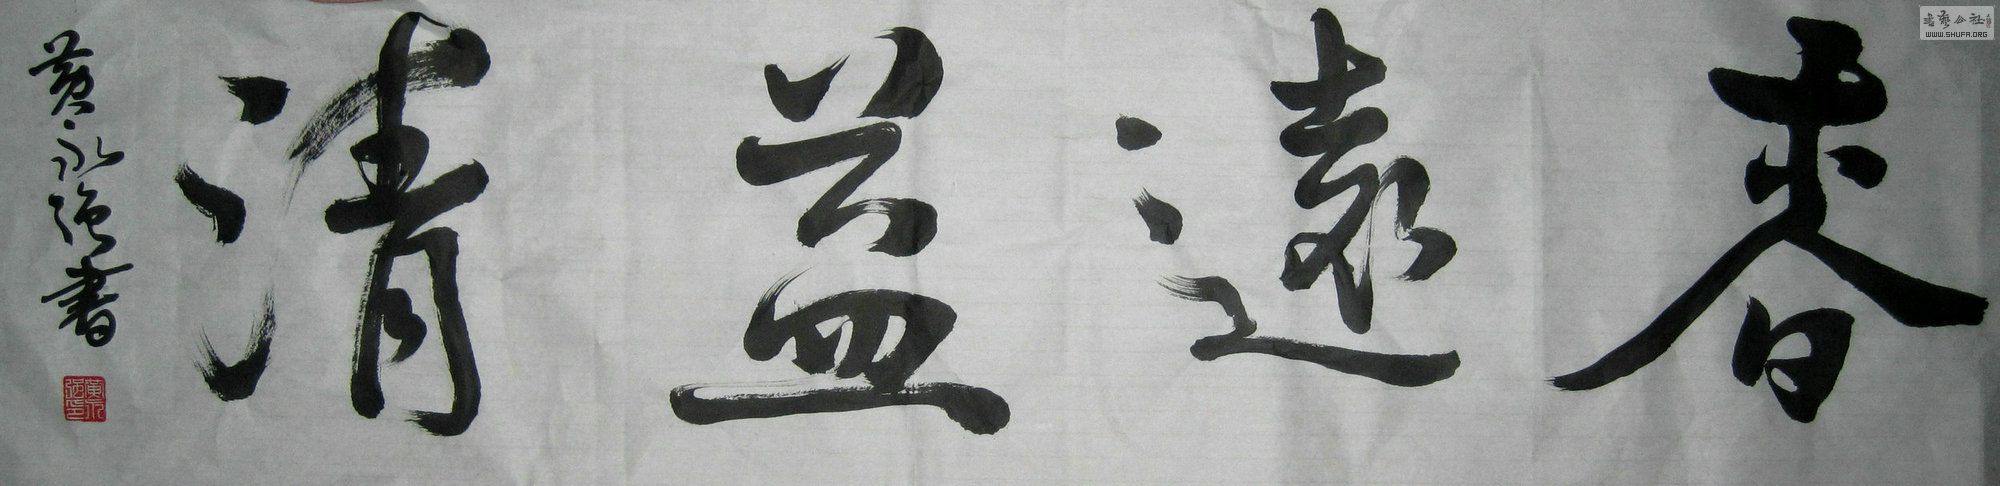 香遠益清
黄永强書
黄永强印
書藝公社
WWW.SHUFA.ORG